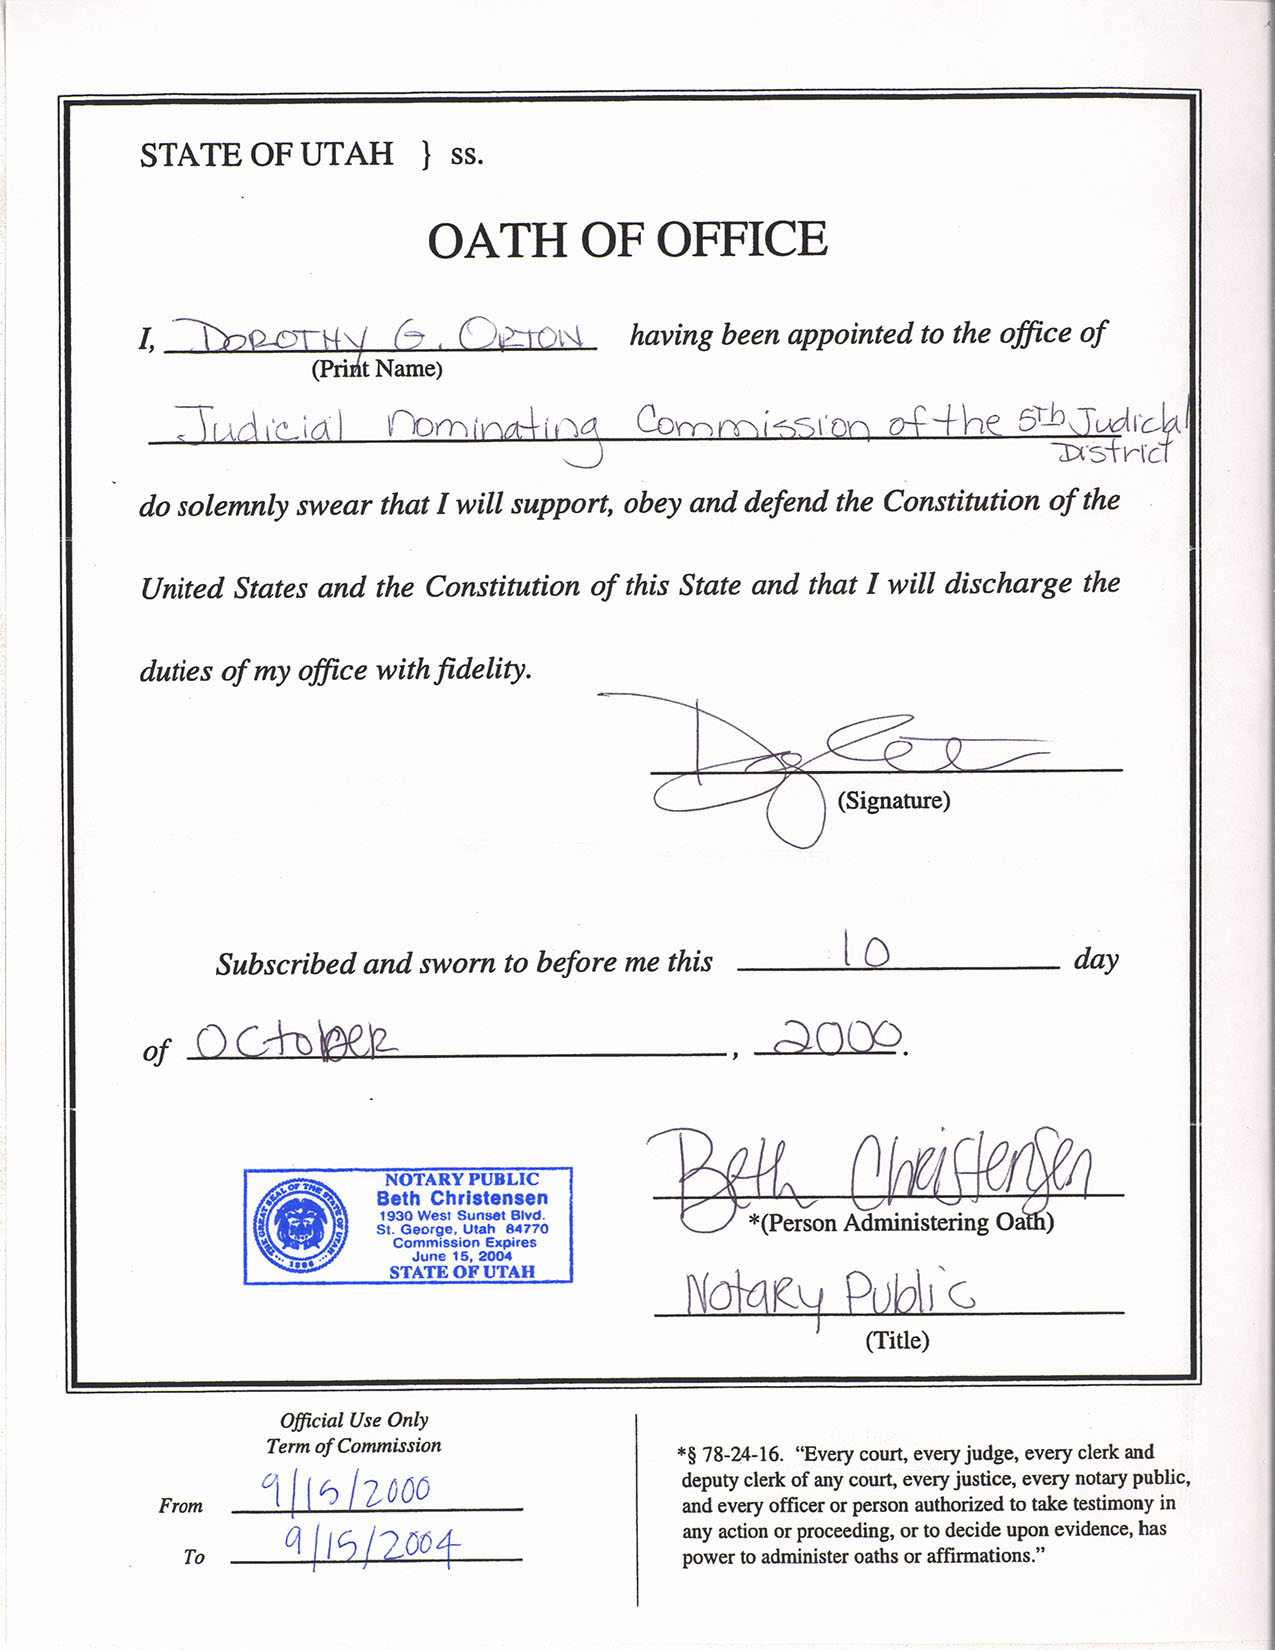 STATE OF UTAH } ss.
OATH OF OFFICE
I, DOROTHY G. ORTON having been appointed to the office of
(Print Name)
Judicial Nominating Commission of the 5th Judicial
District
do solemnly swear that I will support, obey and defend the Constitution of the
United States and the Constitution of this State and that I will discharge the
duties of my office with fidelity.
(Signature)
Subscribed and sworn to before me this 10 day
of October, 2000.
Beth Christensen
*(Person Administering Oath)
Notary Public
(Title)
THE GREAT SEAL OF THE STATE OF UTAH
1896
NOTARY PUBLIC
Beth Christensen
1930 West Sunset Blvd.
St. George, Utah 84770
Commission Expires
June 15, 2004
STATE OF UTAH
Official Use Only
Term of Commission
From 9/15/2000
To 9/15/2004
*§ 78-24-16. “Every court, every judge, every clerk and
deputy clerk of any court, every justice, every notary public,
and every officer or person authorized to take testimony in
any action or proceeding, or to decide upon evidence, has
power to administer oaths or affirmations.”